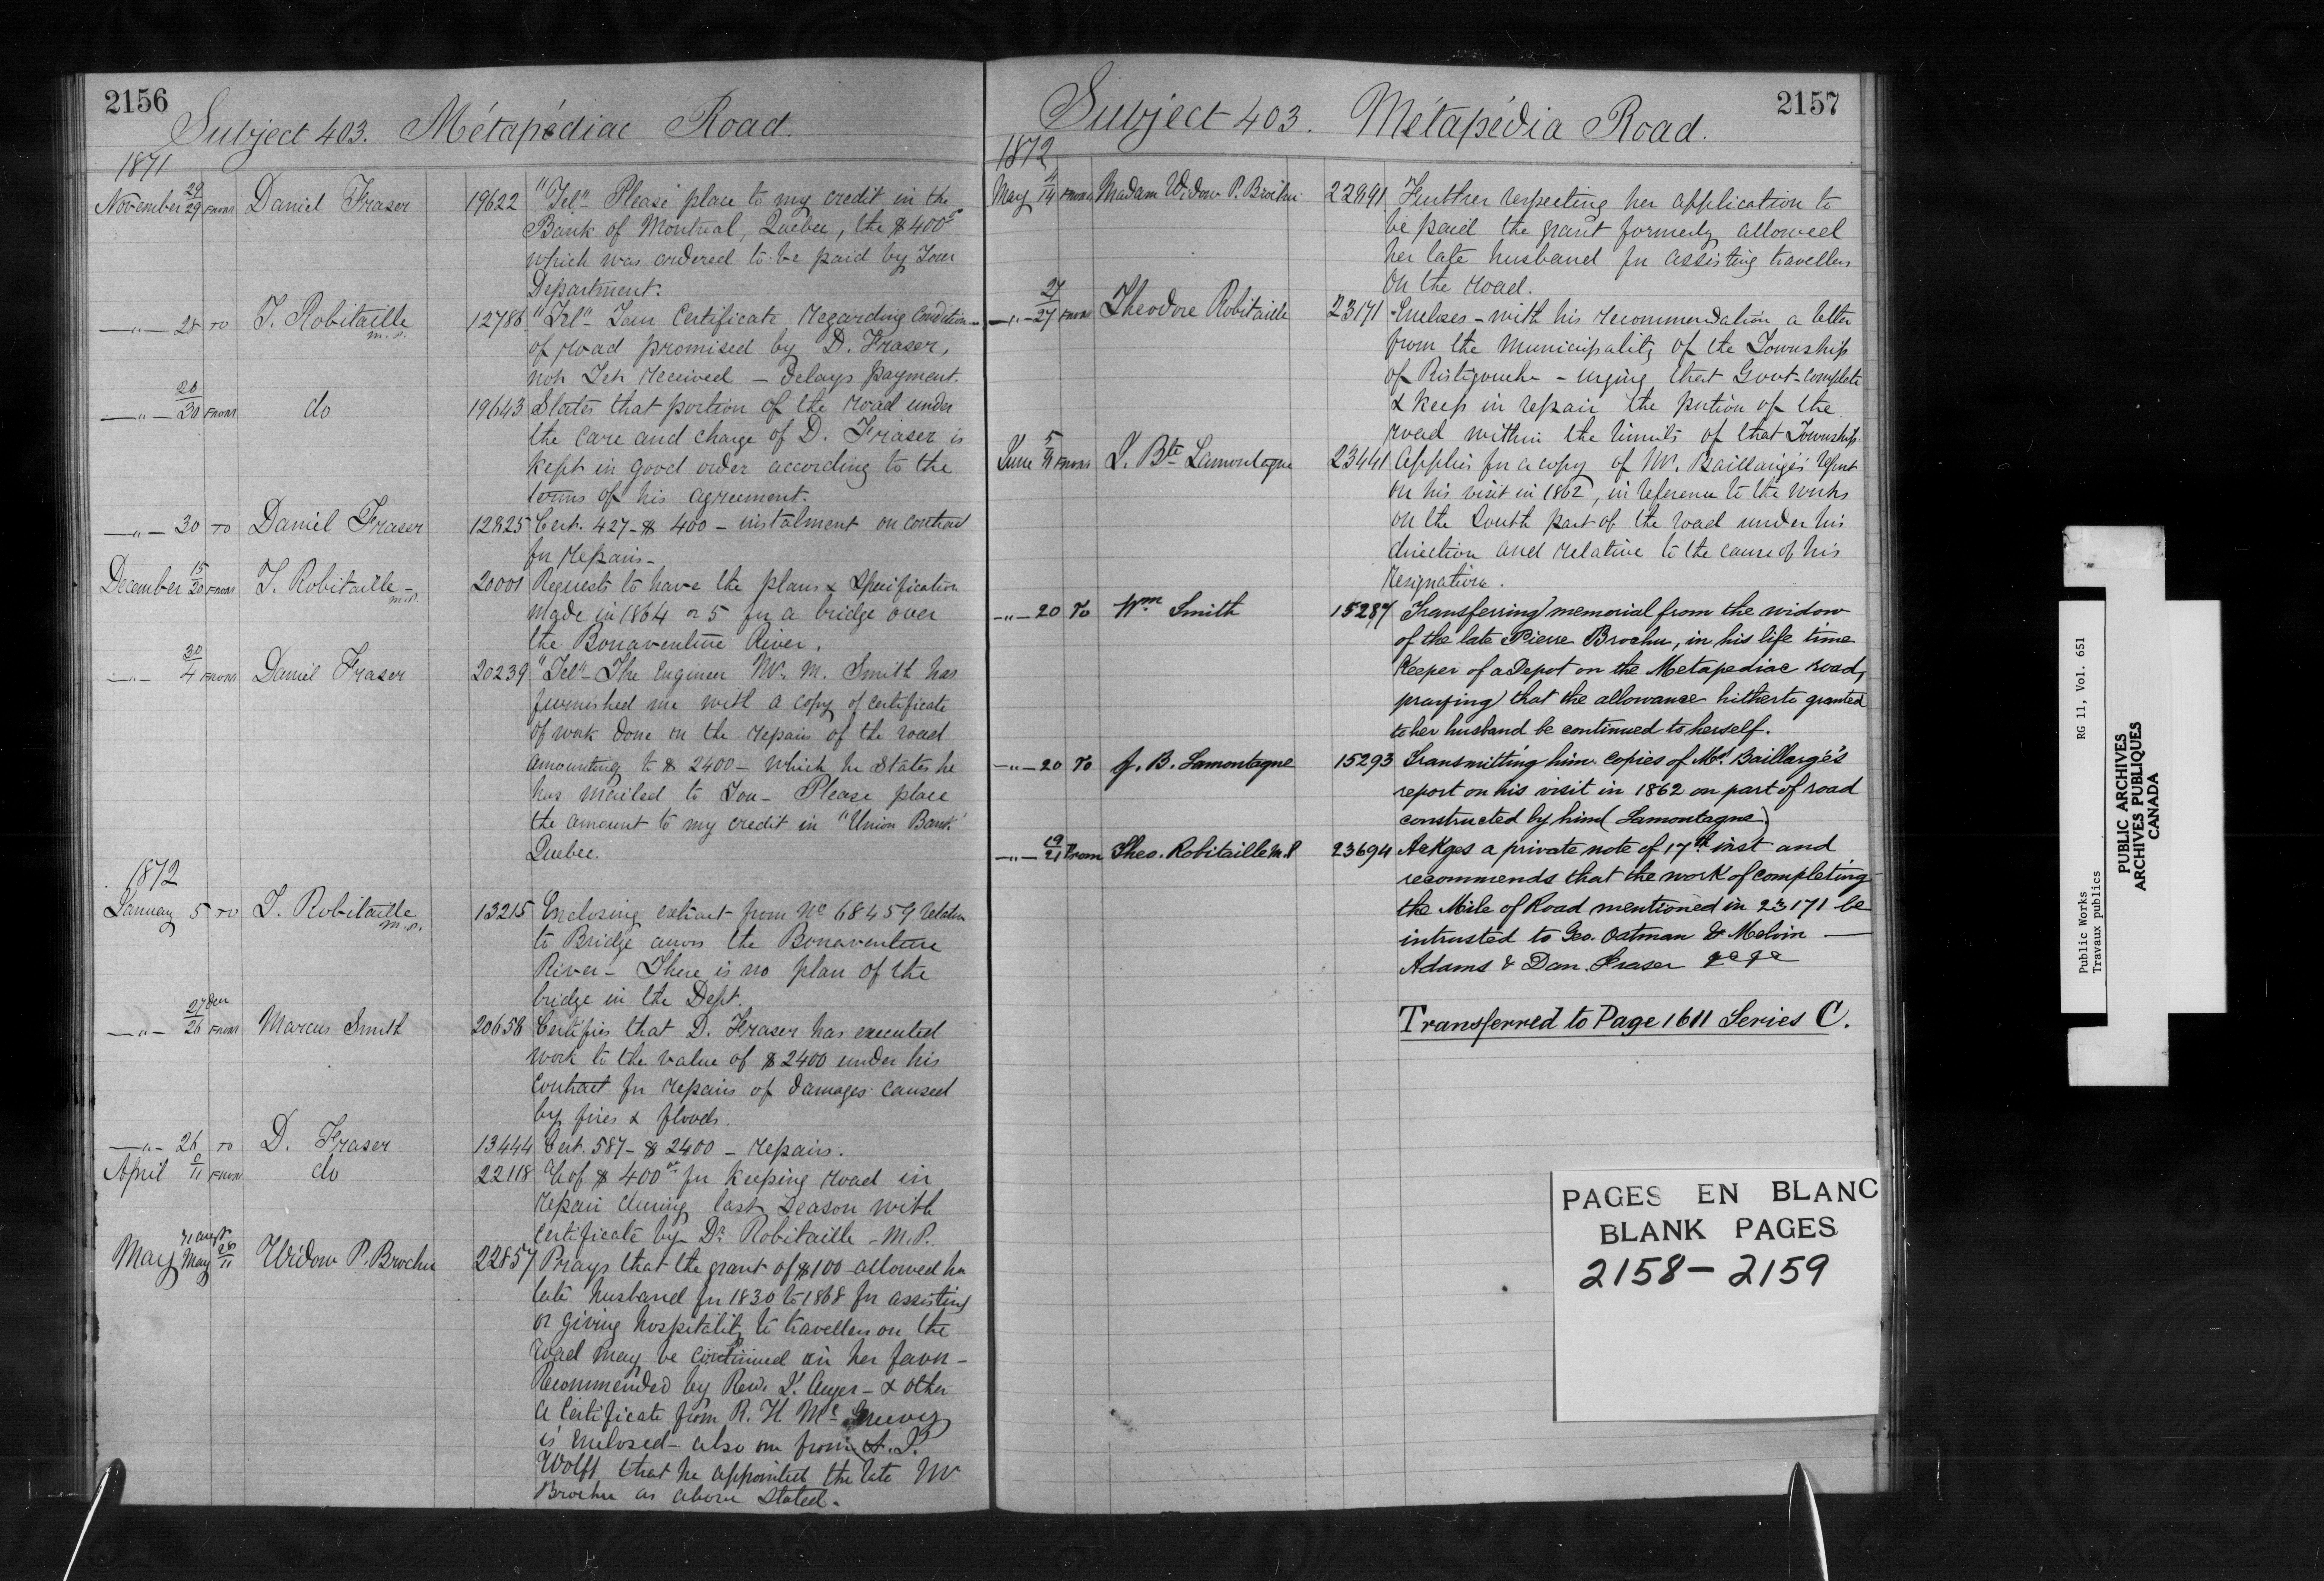 2156
Subject 403. Métapédiac Road.
1871
November 29/29 From Daniel Fraser 19622 "Tel" Please place to my credit in the
Bank of Montreal, Quebec, the $400
which was ordered to be paid by Your
Department.
—"— 28 To T. Robitaille M.P. 12786 "Tel" Your Certificate regarding Condition
of road promised by D. Fraser,
not Yet received — delays payment.
—"— 20/30 From do 19643 States that portion of the road under
the care and charge of D. Fraser is
kept in good order according to the
terms of his agreement.
—"— 30 To Daniel Fraser 12825 Cert. 427 - $ 400 — instalment on contract
for repairs —
December 15/20 From T. Robitaille — M.P. 20001 Requests to have the plans & Specification
made in 1864 or 5 for a bridge over
the Bonaventure River.
—"— 30/4 From Daniel Fraser 20239 "Tel" — The Engineer Mr. M. Smith has
furnished me with a copy of certificate
of work done on the repairs of the road
amounting to $ 2400 — which he states he
has mailed to You — Please place
the amount to my credit in "Union Bank"
Quebec.
1872
January 5 To T. Robitaille M.P. 13215 Enclosing extract from No 68459 relative
to Bridge across the Bonaventure
River — There is no plan of the
bridge in the Dept.
—"— 27 Decr/26 From Marcus Smith 20658 Certifies that D. Fraser has executed
work to the value of $ 2400 under his
Contract for repairs of damages caused
by fires & floods.
—"— 26 To D. Fraser 13444 Cert. 587 — $ 2400 — repairs.
April /11 From do 22118 of $ 400 for keeping road in
repair during last Season with
Certificate by Dr Robitaille — M.P.
May May /11 Widow P. Brochu 22857 Prays that the grant of $100 allowed her
late husband for 1830 to 1868 for assisting
or giving hospitality to travellers on the
road may be continued in her favor —
Recommended by Revd. Auger — & other
a Certificate from R. H. Mc
is enclosed — also one from A. P.
Wolff that he appointed the late Mr
Brochu as above stated.
2157
Subject 403. Métapédia Road.
1872
May 4/14 From Madam Widow P. Brochu 22891 Further respecting her application to
be paid the grant formerly allowed
her late husband for assisting travellers
on the road.
—"— 27/27 From Theodore Robitaille 23171 Encloses — with his recommendation a letter
from the Municipality of the Township
of Ristigouche — urging that Govt complete
& keep in repair the portion of the
road within the limits of that Township.
June 5/11 From J. Bte Lamontagne 23441 Applies for a copy of Mr. Baillargé's report
on his visit in 1862, in reference to the works
on the South part of the road under his
direction and relative to the cause of his
resignation.
—"— 20 To Wm Smith 15287 Transferring memorial from the widow
of the late Pierre Brochu, in his life time
Keeper of a Depot on the Metapediac road,
praying that the allowance hitherto granted
to her husband be continued to herself.
—"— 20 To J. B. Lamontagne 15293 Transmitting him copies of Mr. Baillargé's
report on his visit in 1862 on part of road
constructed by him (Lamontagne)
—"— 19/21 From Theo. Robitaille M.P 23694 Ackges a private note of 17th inst and
recommends that the work of completing
the Mile of Road mentioned in 23171 be
intrusted to Geo. Oatman & Melvin —
Adams & Dan. Fraser
Transferred to Page 1611 Series C.
PAGES EN BLANC
BLANK PAGES
2158 — 2159
Public Works RG 11, Vol. 651
Travaux publics
PUBLIC ARCHIVES
ARCHIVES PUBLIQUES
CANADA